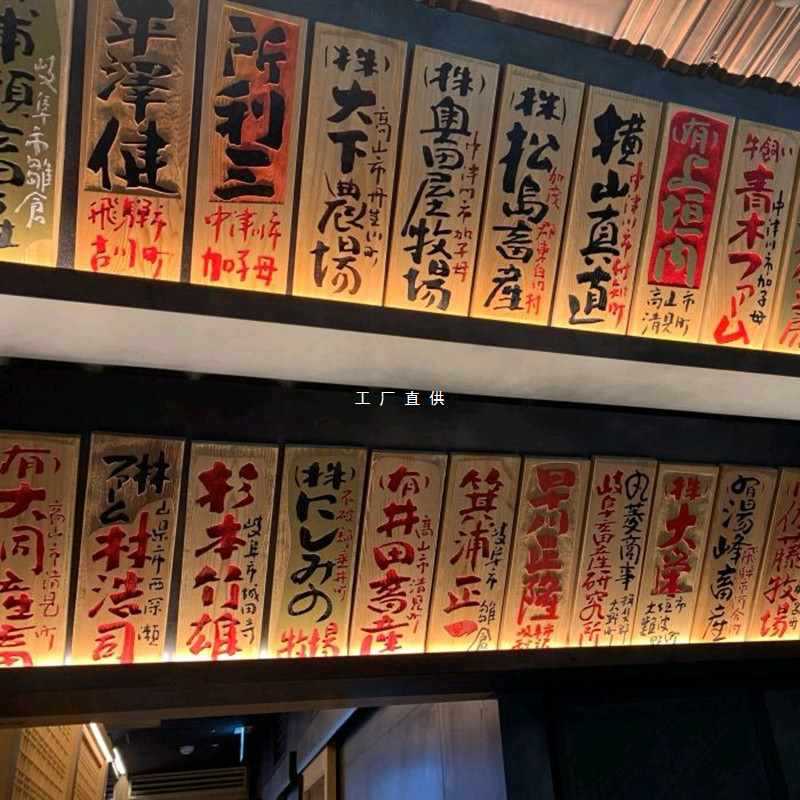 平澤健
飛騨市
古川町
所利三
中津川市
加子母
(株)
大下農場
高山市丹生川町
(株)
奥田屋牧場
中津川市加子母
(株)
松島畜産
加茂郡東白川村
横山真直
中津川市
(有)
上垣内
高山市
清見町
牛飼い
青木ファーム
中津川市加子母
岐阜市雛倉
工厂直供
(有)
大洞
高山市清見町
林ファーム
林浩司
山県市西深瀬
杉本竹雄
岐阜市城田寺
(株)
にしみの
牧場
不破郡垂井町
(有)
井田畜産
高山市清見町
箕浦正一
岐阜市雛倉
早川正隆
丸菱商事
岐阜畜産研究所
揖斐郡
大野町
(株)
大栄
(有)
湯峰畜産
佐藤牧場